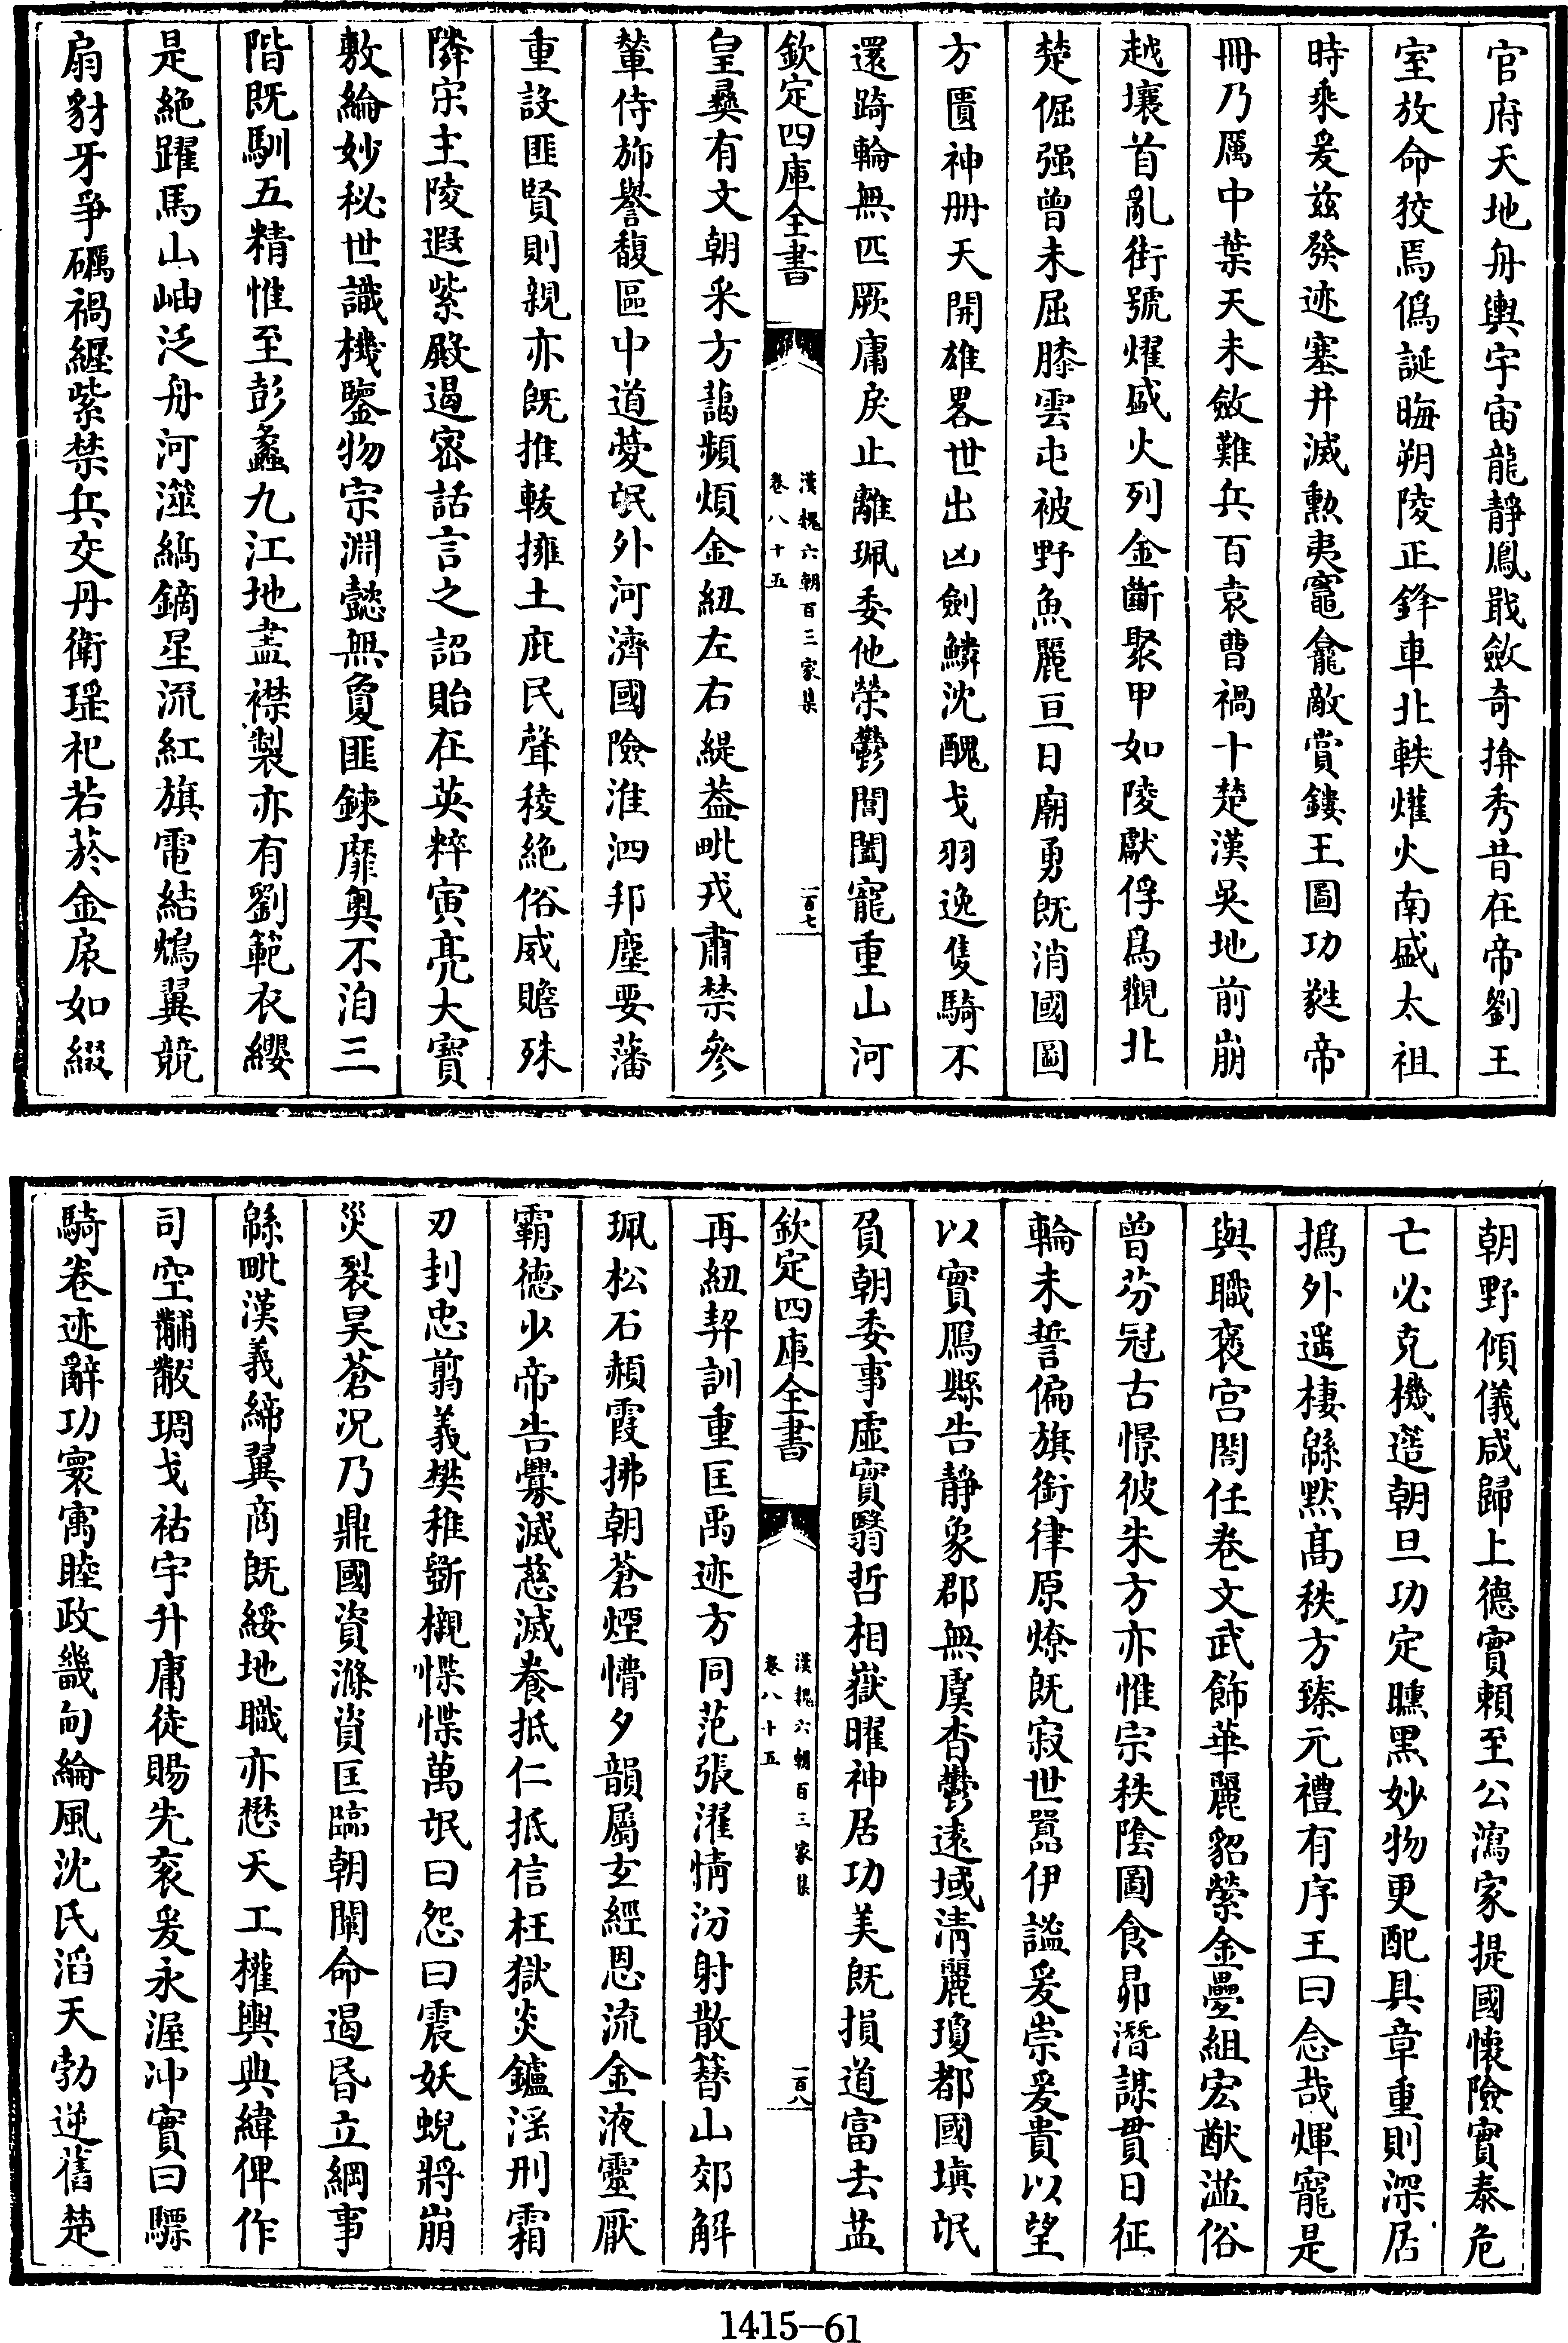 官府天地舟輿宇宙龍靜鳳戢斂奇揜秀昔在帝劉王
室放命狡焉僞誕晦朔陵正鋒車北軼爟火南盛太祖
時乘爰茲發迹塞井滅勲夷竈龕敵賞鏤王圖功蕤帝
冊乃厲中葉天未斂難兵百袁曹禍十楚漢吳地前崩
越壤首亂街號燿盛火列金斷聚甲如陵獻俘爲觀北
楚倔强曾未屈膝雲屯被野魚麗亘日廟勇既消國圖
方匱神册天開雄畧世出凶劍鱗沈醜戈羽逸隻騎不
還踦輪無匹厥庸戾止離珮委他榮鬱閶闔寵重山河
欽定四庫全書
漢魏六朝百三家集
卷八十五
一百七
皇彝有文朝采方藹頻煩金紐左右緹葢毗戎肅禁參
輦侍斾譽馥區中道薆氓外河濟國險淮泗邦塵要藩
重設匪賢則親亦既推轂擁土庇民聲稜絶俗威贍殊
隣宋主陵遐紫殿遏密話言之詔貽在英粹寅亮大寶
敷綸妙秘世識機鑒物宗淵懿無負匪鍊靡奥不洎三
階既馴五精惟至彭蠡九江地盡襟製亦有劉範衣纓
是絶躍馬山岫泛舟河澨鎬鏑星流紅旗電結鴆翼競
扇豺牙爭礪禍纒紫禁兵交丹衛瑶祀若菸金扆如綴
朝野傾儀咸歸上德實賴至公瀉家提國懷險實泰危
亡必克機造朝旦功定曛黑妙物更配具章重則深居
撝外遥棲緜黙髙秩方臻元禮有序王曰念哉煇寵是
與職衮宫閤任卷文武飾華麗貂縈金壘組宏猷溢俗
曾芬冠古憬彼朱方亦惟宗秩陰圖食昴潛謀貫日征
輪未誓偏旗銜律原燎既寂世嚚伊謐爰崇爰貴以望
以實鴈縣告静象郡無虞杳鬱遠域淸麗瓊都國塡氓
負朝委事虛實翳哲相嶽曜神居功美既損道富去盐
欽定四庫全書
漢魏六朝百三家集
卷八十五
一百八
再紐契訓重匡禹迹方同范張濯情汾射散簪山郊解
珮松石頳霞拂朝蒼煙懵夕韻屬玄經恩流金液靈厭
霸德少帝告釁滅慈滅養抵仁抵信枉獄炎鑪滛刑霜
刃刲忠翦義樊稚斮櫬惵惵萬氓曰怨曰震妖蜺將崩
災裂昊蒼况乃鼎國資滌資匡臨朝闡命遏昏立綱事
緜毗漢義締翼商既綏地職亦懋天工權輿典緯俾作
司空黼黻琱戈祜宇升庸徒賜先衮爰永渥沖實曰驃
騎卷迹辭功寰寓睦政畿甸綸風沈氏滔天勃逆舊楚
1415−61